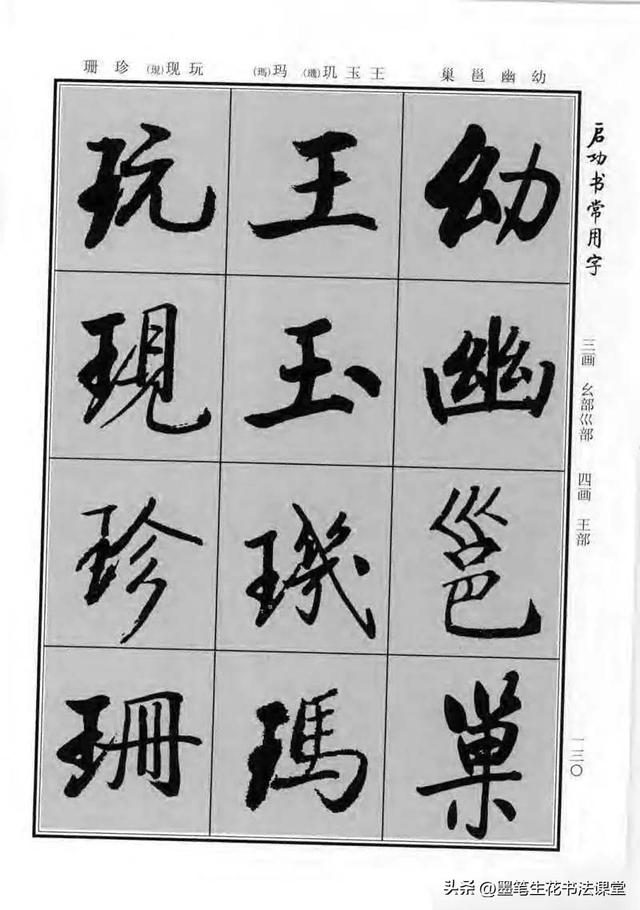 幼幽邕巢
王玉玑(璣)玛(瑪)
玩现(現)珍珊
启功书常用字
三画 幺部巛部 四画 王部
一三〇
幼
幽
邕
巢
王
玉
璣
瑪
玩
現
珍
珊
头条@墨笔生花书法课堂